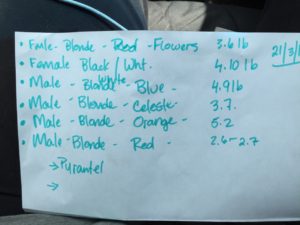 • Fmle - Blonde - Red - Flowers 3.6 lb
• Female Black / Wht. 4.10 lb
White
• Male - Blonde - Blue - 4.9 lb
• Male - Blonde - Celeste - 3.7.
• Male - Blonde - Orange - 5.2
• Male - Blonde - Red - 2.6 - 2.7
→ Pyrantel
→
21/3/